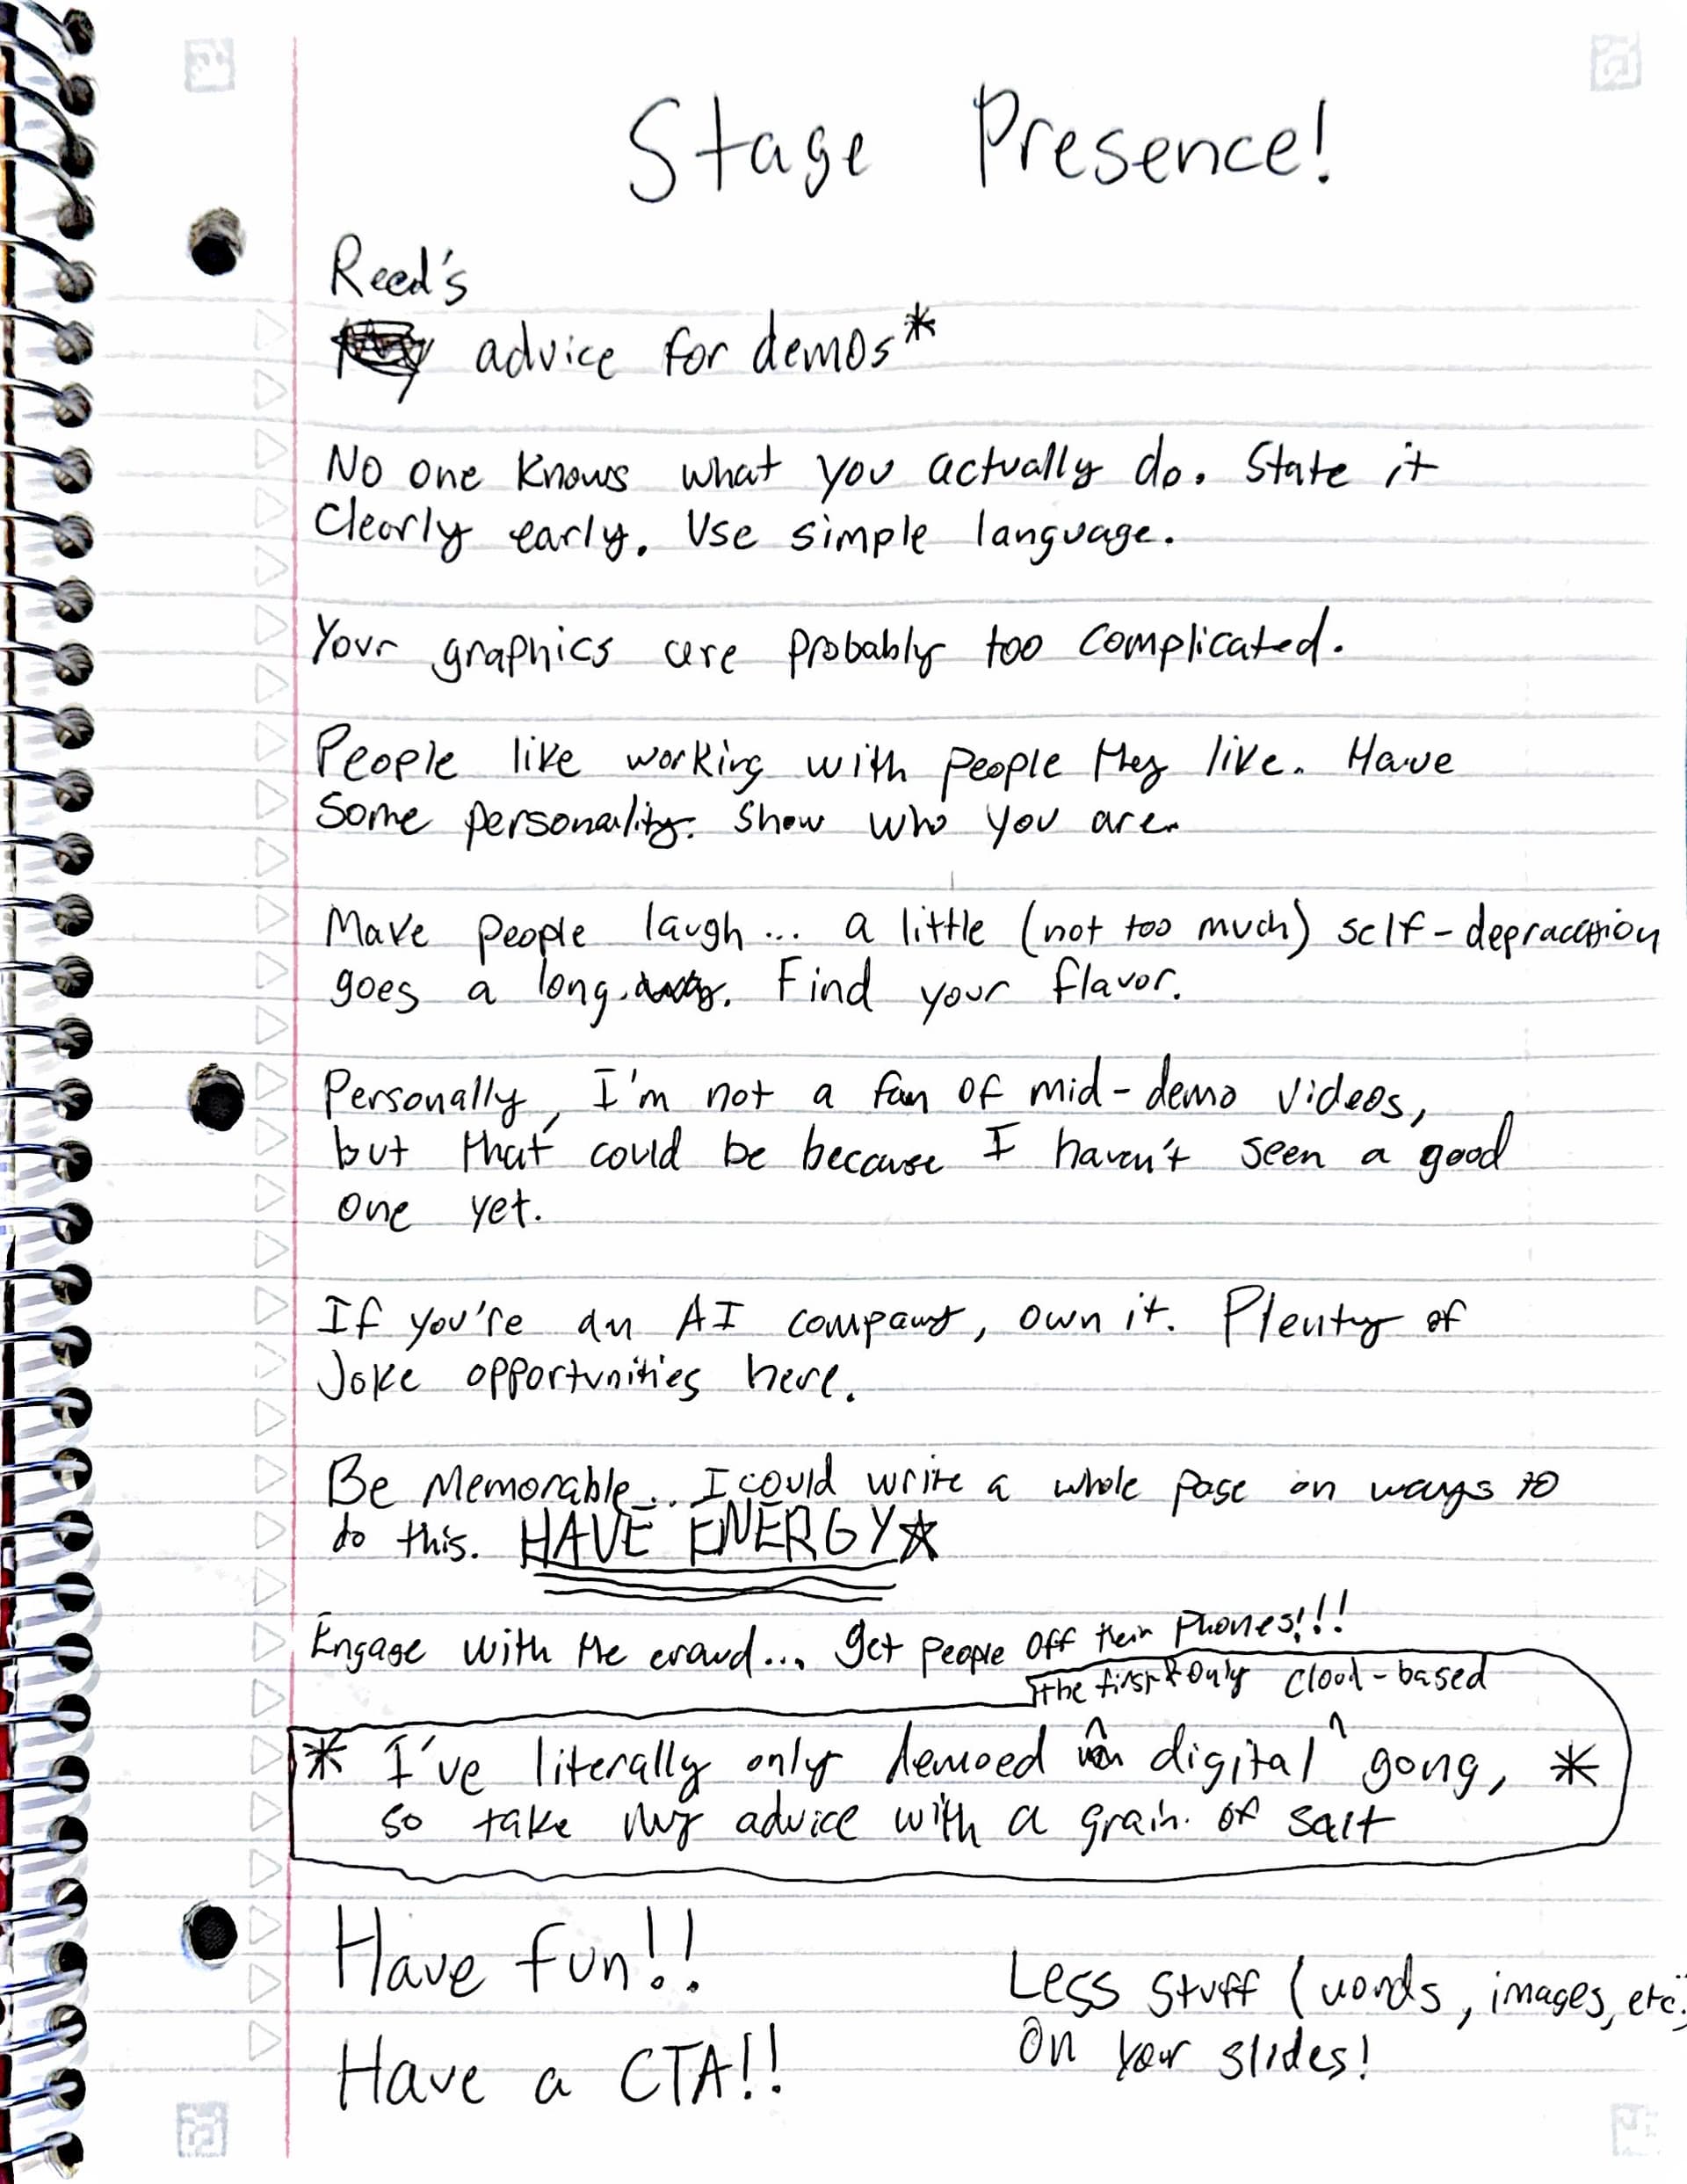 Stage Presence!
Reed's
advice for demos*
No one knows what you actually do. State it
Clearly early. Use simple language.
Your graphics are probably too complicated.
People like working with people they like. Have
Some personality. Show who you are.
Make people laugh... a little (not too much) self-depracation
goes a long way. Find your flavor.
Personally, I'm not a fan of mid-demo videos,
but that could be because I haven't seen a good
one yet.
If you're an AI company, own it. Plenty of
Joke opportunities here.
Be Memorable... I could write a whole page on ways to
do this. HAVE ENERGY☆
Engage with the crowd... get people off their phones!!!
the first & only cloud-based
* I've literally only demoed digital ^ gong, *
so take my advice with a grain of salt
Have fun!!
Less stuff (words, images, etc.)
on your slides!
Have a CTA!!